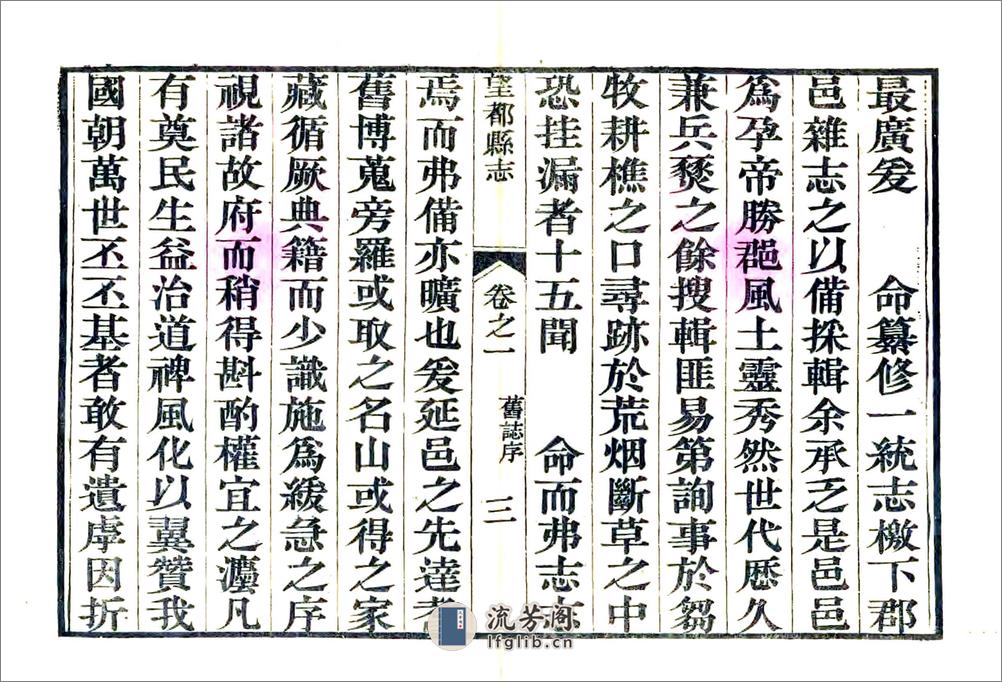 最廣爰　　命纂修一統志檄下郡
邑雜志之以備採輯余承乏是邑邑
為孕帝勝風土靈秀然世代歷久
兼兵燹之餘搜輯匪易第詢事於芻
牧耕樵之口尋跡於荒烟斷草之中
恐挂漏者十五聞　　命而弗志
望都縣志　卷之一　舊誌序　三
焉而弗備亦曠也爰延邑之先達耆
舊博蒐旁羅或取之名山或得之家
藏循厥典籍而少識施為緩急之序
視諸故府而稍得斟酌權宜之灋凡
有奠民生益治道裨風化以翼贊我
國朝萬世丕丕基者敢有遺虖因折
流芳阁
lfglib.cn